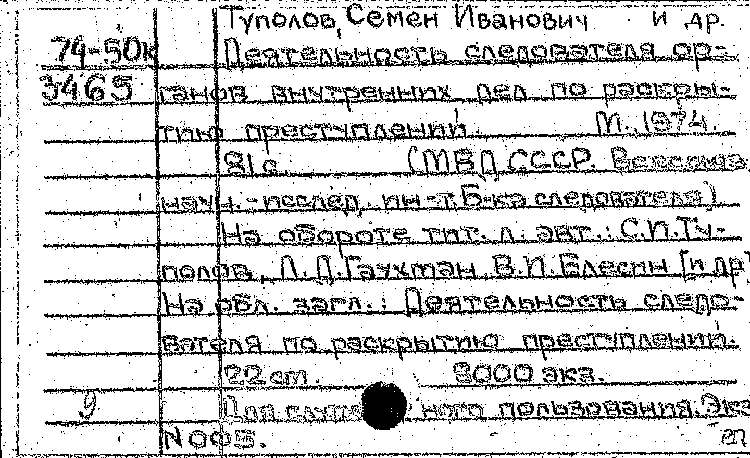 Туполов, Семен Иванович и др.
74-50к Деятельность следователя ор-
3465 ганов внутренних дел по раскры-
тию преступлений. М., 1974.
81 с. (МВД СССР. Всесоюз.
науч.-исслед. ин-т. Б-ка следователя)
На обороте тит. л. авт.: С.И. Ту-
полов, Л.Д. Гаухман, В.И. Елесин [и др
На обл. загл.: Деятельность следо-
вателя по раскрытию преступлений.
22 cm. 8000 экз.
9 Для ного пользования. Экз
N005.